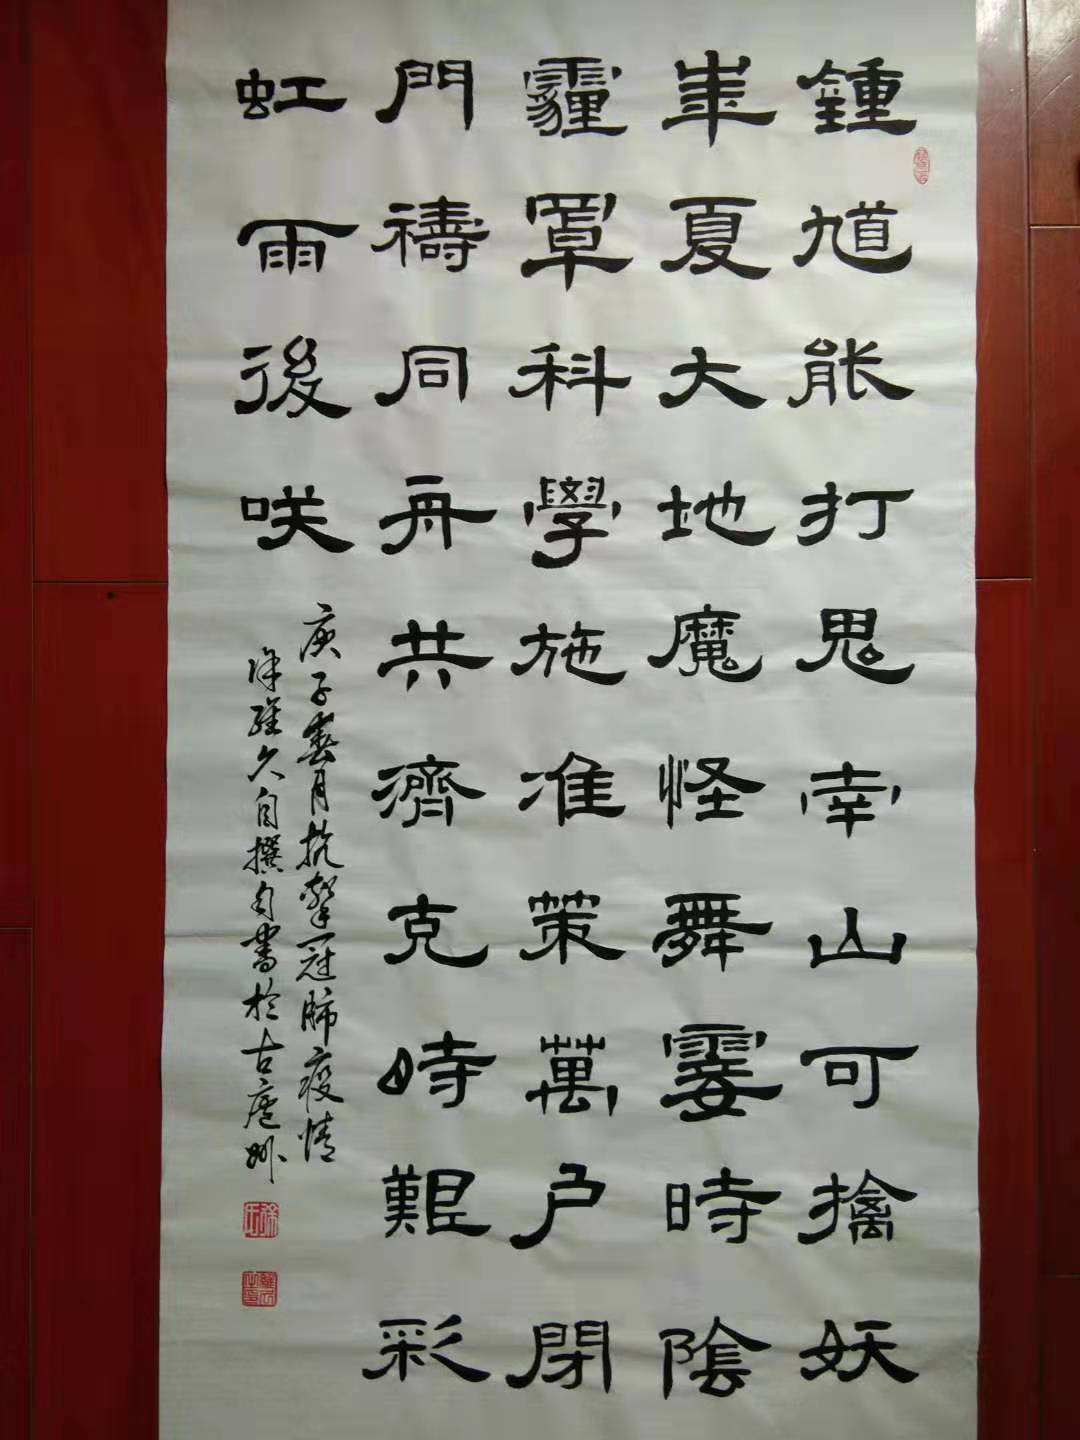 鍾馗能打鬼南山可擒妖
華夏大地魔怪舞霎時陰
霾罩科學施准策萬戶閉
門禱同舟共濟克時艱彩
虹雨後咲
庚子春月抗擊冠肺疫情
徐維久自撰自書於古廬州